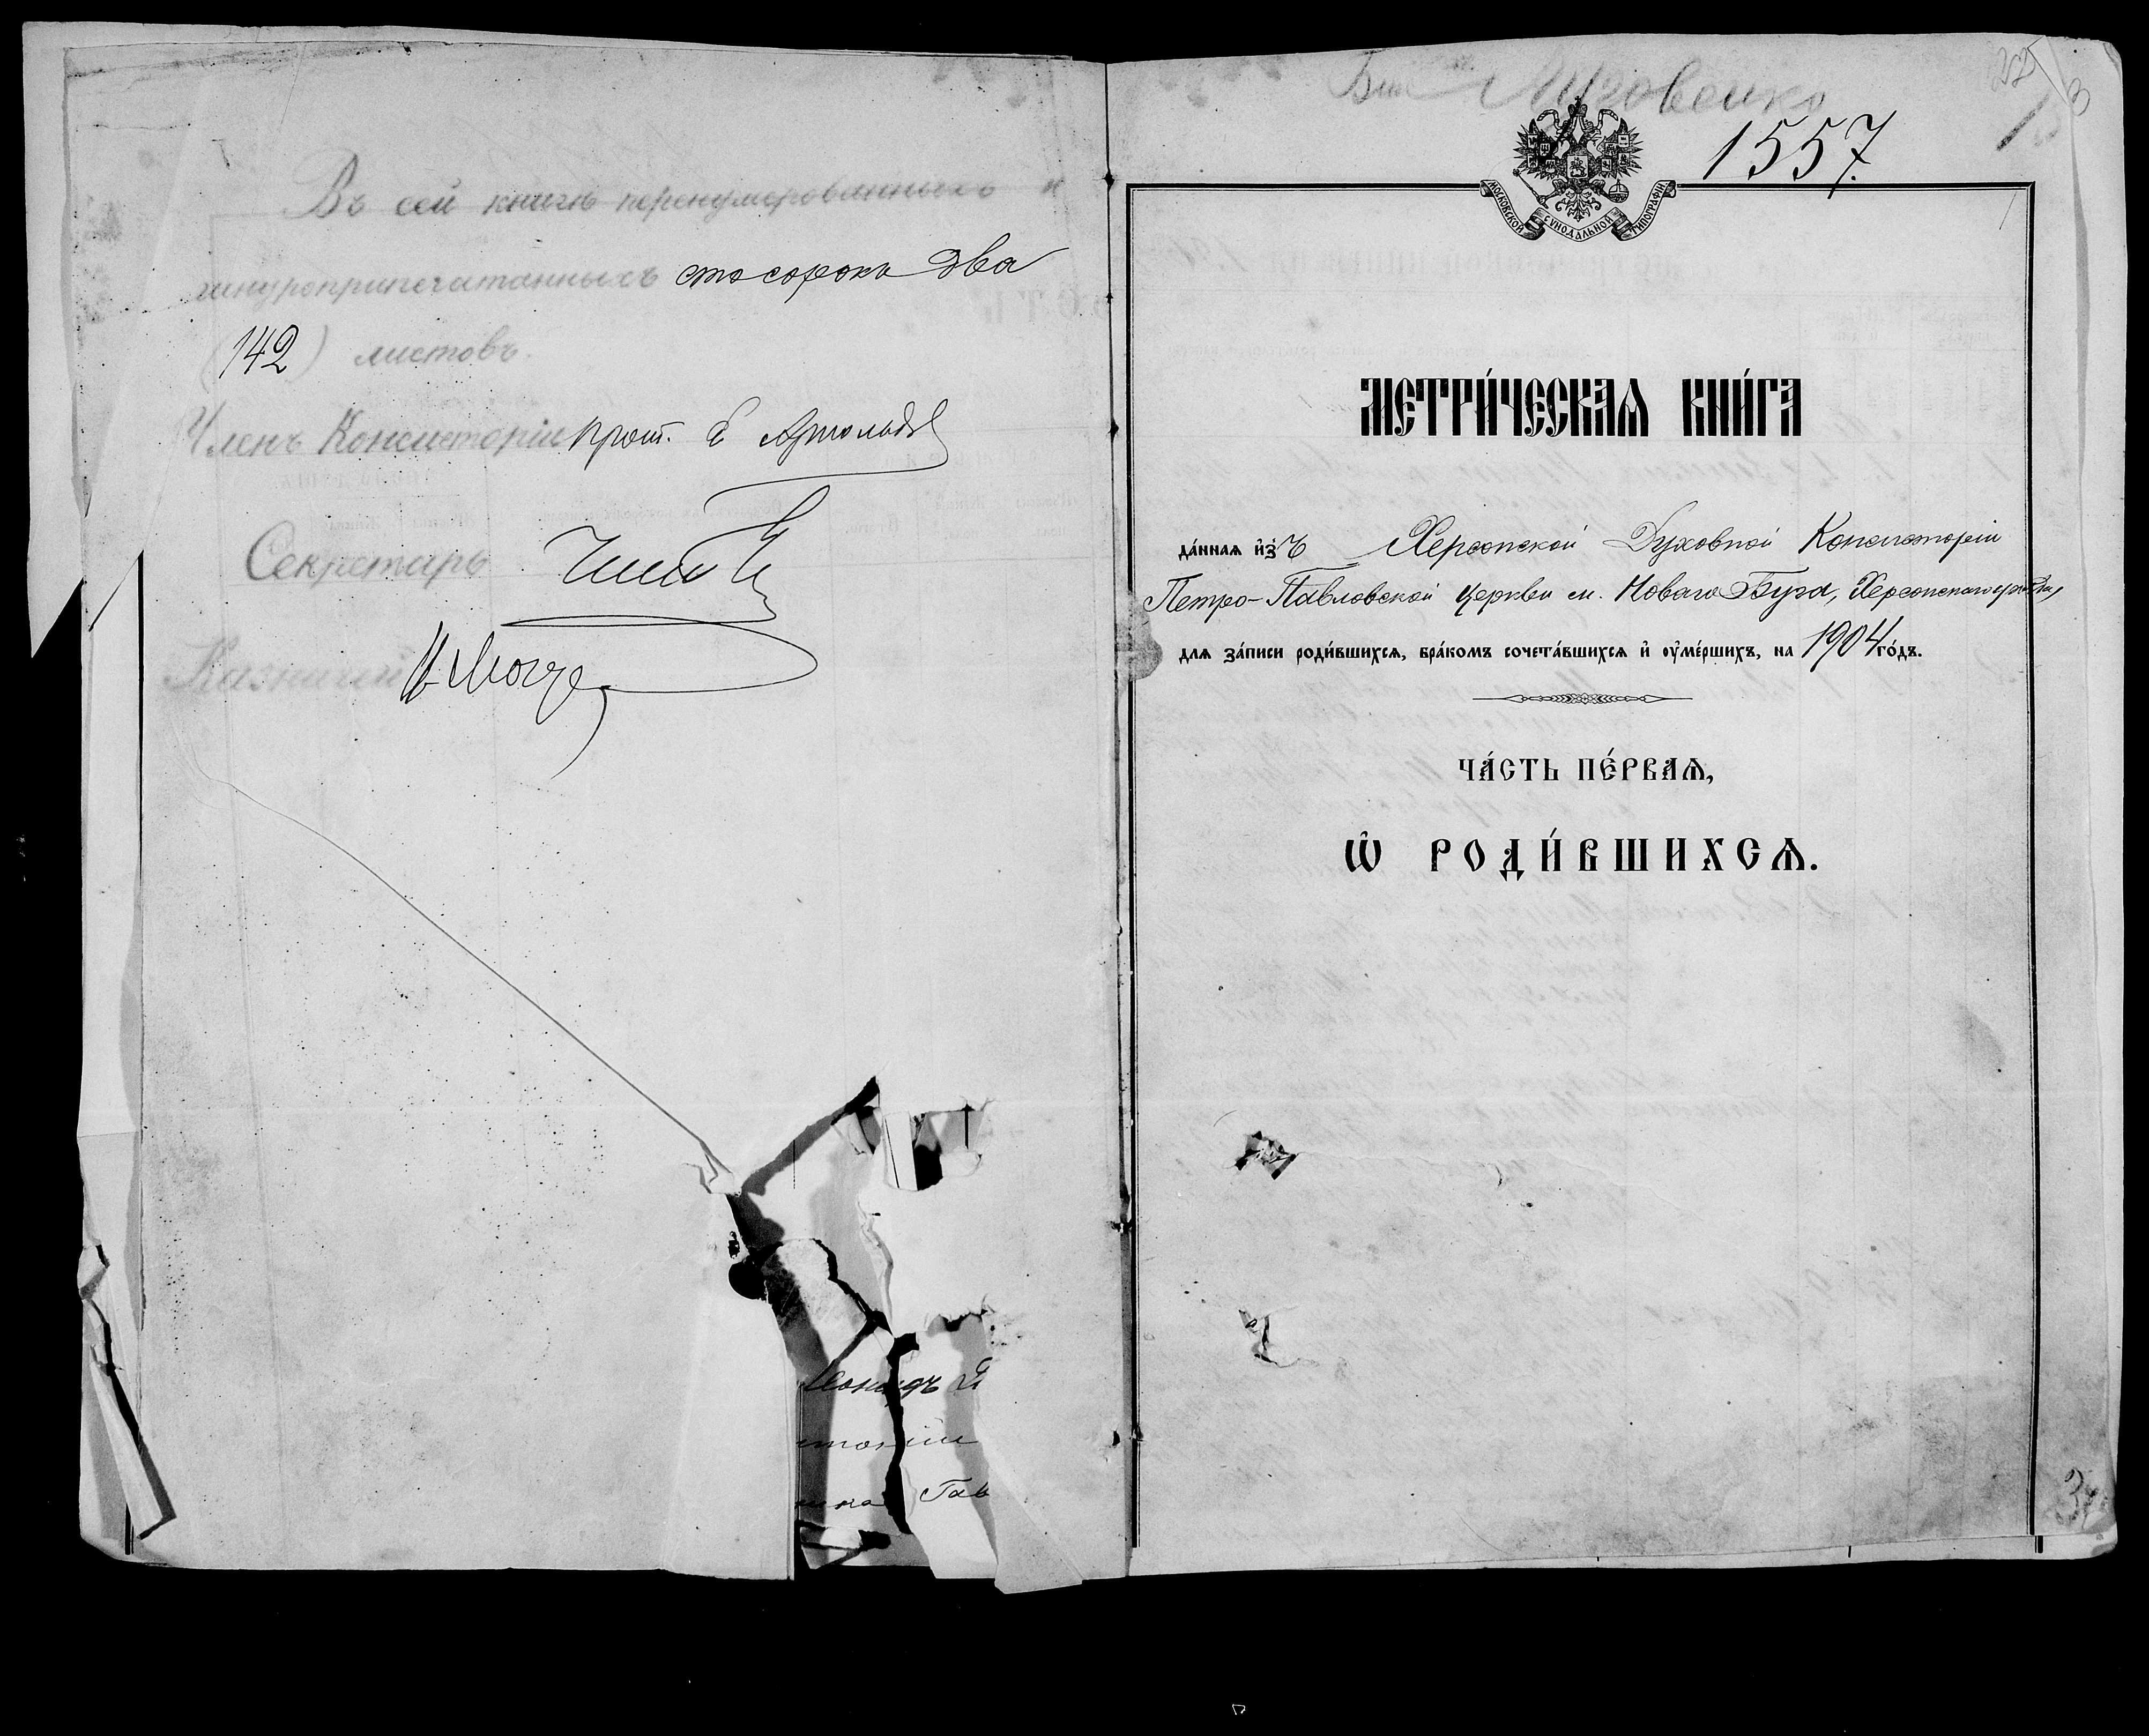 Въ сей книгѣ перенумерованныхъ и
шнуроприпечатанныхъ сто сорокъ два
(142) листовъ.
Членъ Консисторіи прот.
Секретарь
Казначей
1557.
МОСКОВСКОЙ СѴНОДАЛЬНОЙ ТИПОГРАФІИ
МЕТРИ́ЧЕСКАѦ КНИ́ГА
да́ннаѧ и҆зъ Херсонской Духовной Консисторіи
Петро-Павловской церкви м. Новаго Буга, Херсонскаго уѣзда,
длѧ за́писи роди́вшихсѧ, бра́комъ сочета́вшихсѧ и҆ ѹ҆ме́ршихъ, на 1904 го́дъ.
ЧА́СТЬ ПЕ́РВАѦ,
Ѽ РОДИ́ВШИХСѦ.